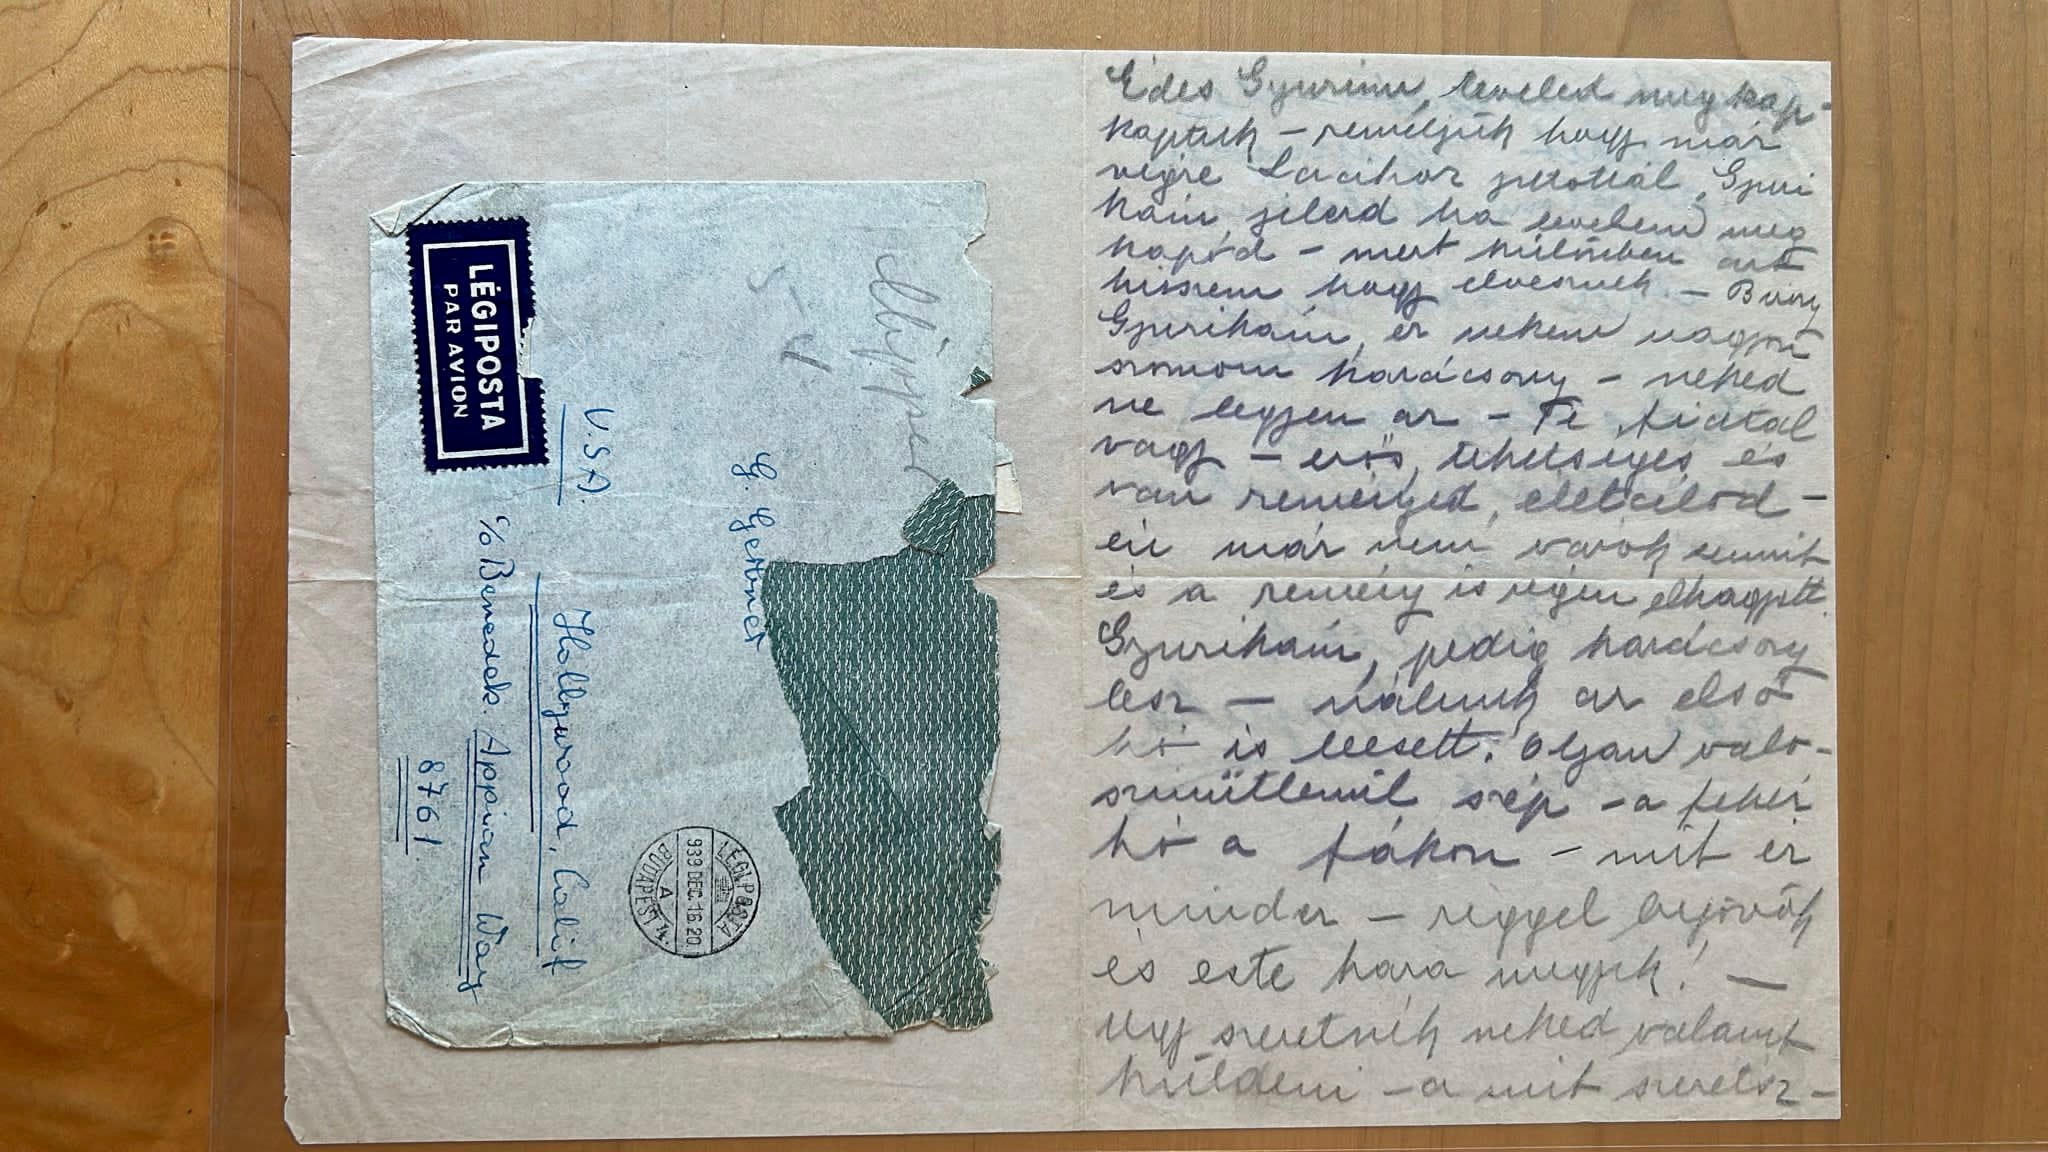 LÉGIPOSTA
PAR AVION
Clipper
G. Gerbner
U.S.A.
Hollywood, Calif
c/o Benedek. Appian Way
8761.
LÉGI POSTA
939 DEC. 16. 20
A
BUDAPEST
Edes Gyurim, leveled meg kap-
kaptuk – reméljük hogy már
végre Lacihoz jutottál, Gyuri
kám jelezd ha levelem meg
kapod – mert különben azt
hiszem hogy elvesznek. – Bizony
Gyurikám, ez nekem nagyon
szomorú karácsony – neked
ne legyen az – Te fiatal
vagy – erös, tehetséges és
van reményed, eletcélod –
én már nem várok semmit
és a remény is régen elhagyott.
Gyurikám, pedig karácsony
lesz – nálunk az első
hó is leesett. Olyan való-
szinütlenül szép – a fehér
hó a fákon – mit ér
mindez – reggel bejövök
és este haza megyek! –
Ugy szeretnék neked valamit
küldeni – a mit szeretsz –